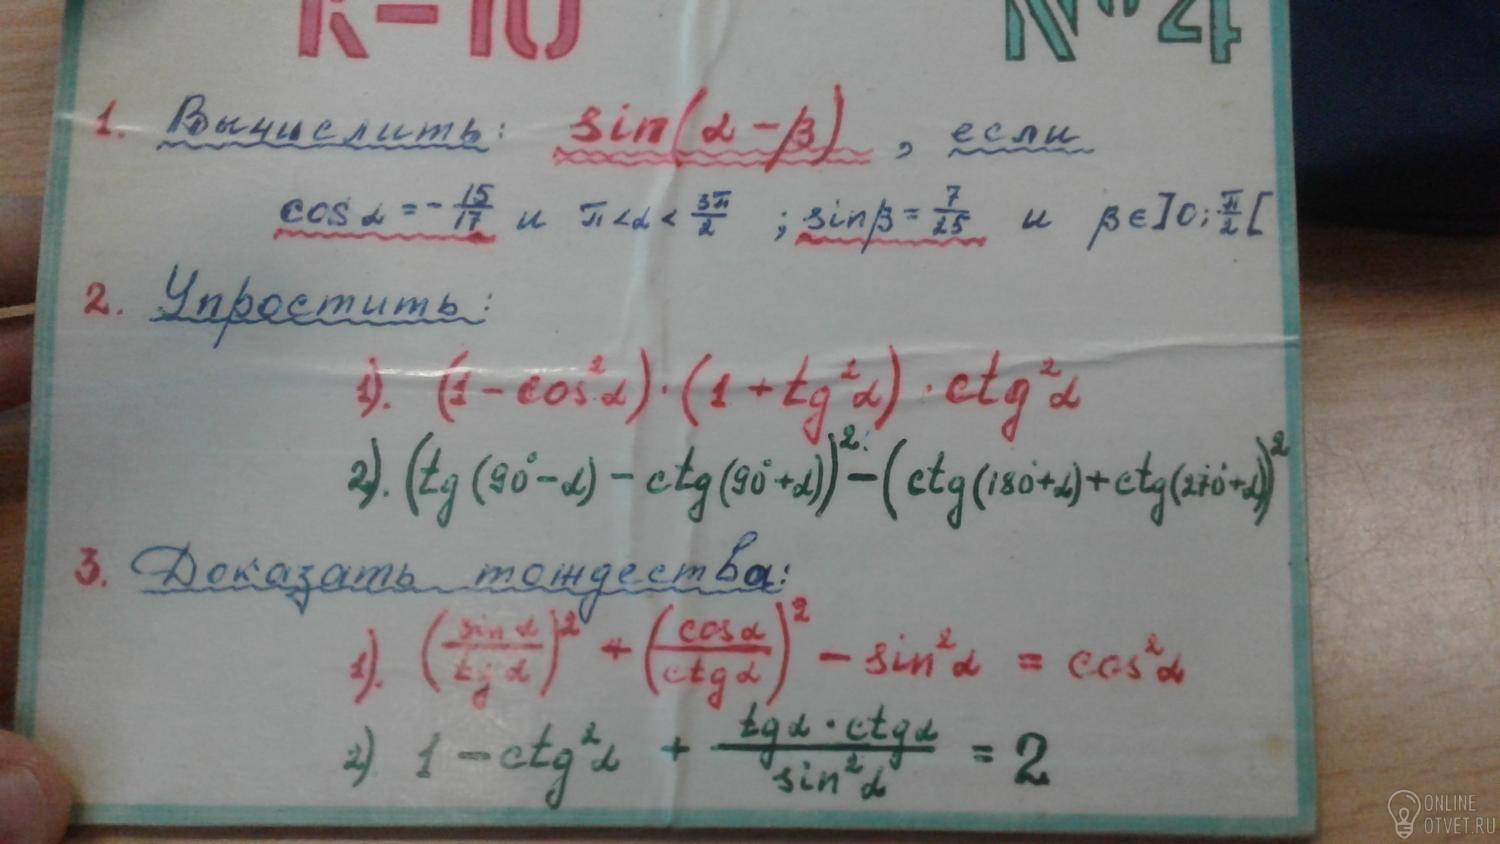 К-10 №4
1. Вычислить: sin(α-β), если
cos α = -15/17 и π<α<3π/2 ; sinβ = 7/25 и β∈]0;π/2[
2. Упростить:
1). (1-cos²α)·(1+tg²α)·ctg²α
2). (tg(90°-α)-ctg(90°+α))²-(ctg(180°+α)+ctg(270°+α))²
3. Доказать тождества:
1). (sin α/tg α)² + (cos α/ctg α)² - sin²α = cos²α
2) 1-ctg²α + tgα·ctgα/sin²α = 2
ONLINE
OTVET.RU